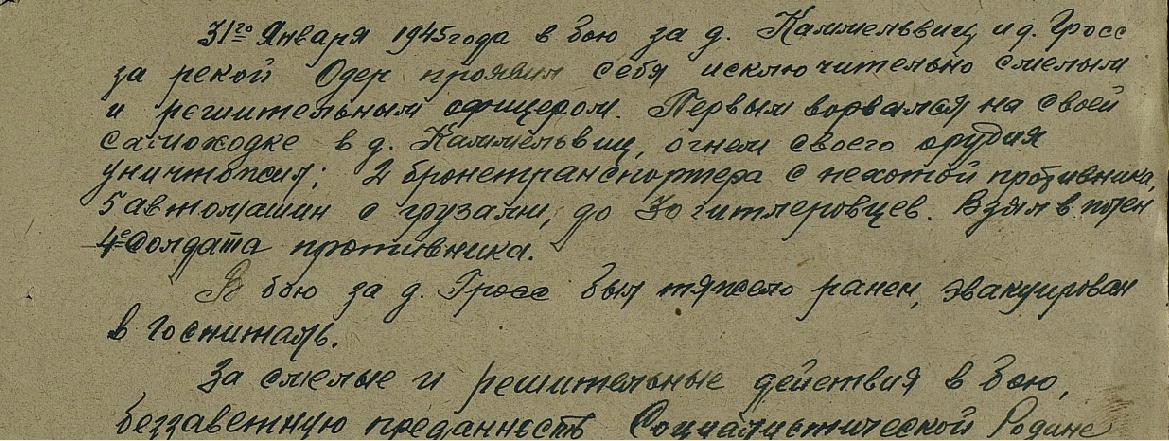 31го Января 1945 года в бою за д. Каммельвиц и д. Гросс
за рекой Одер проявил себя исключительно смелым
и решительным офицером. Первым ворвался на своей
самоходке в д. Каммельвиц, огнем своего орудия
уничтожил: 2 бронетранспортера с пехотой противника,
5 автомашин с грузами, до 30 гитлеровцев. Взял в плен
4е солдата противника.
В бою за д. Гросс был тяжело ранен, эвакуирован
в госпиталь.
За смелые и решительные действия в бою,
беззаветную преданность Социалистической Родине